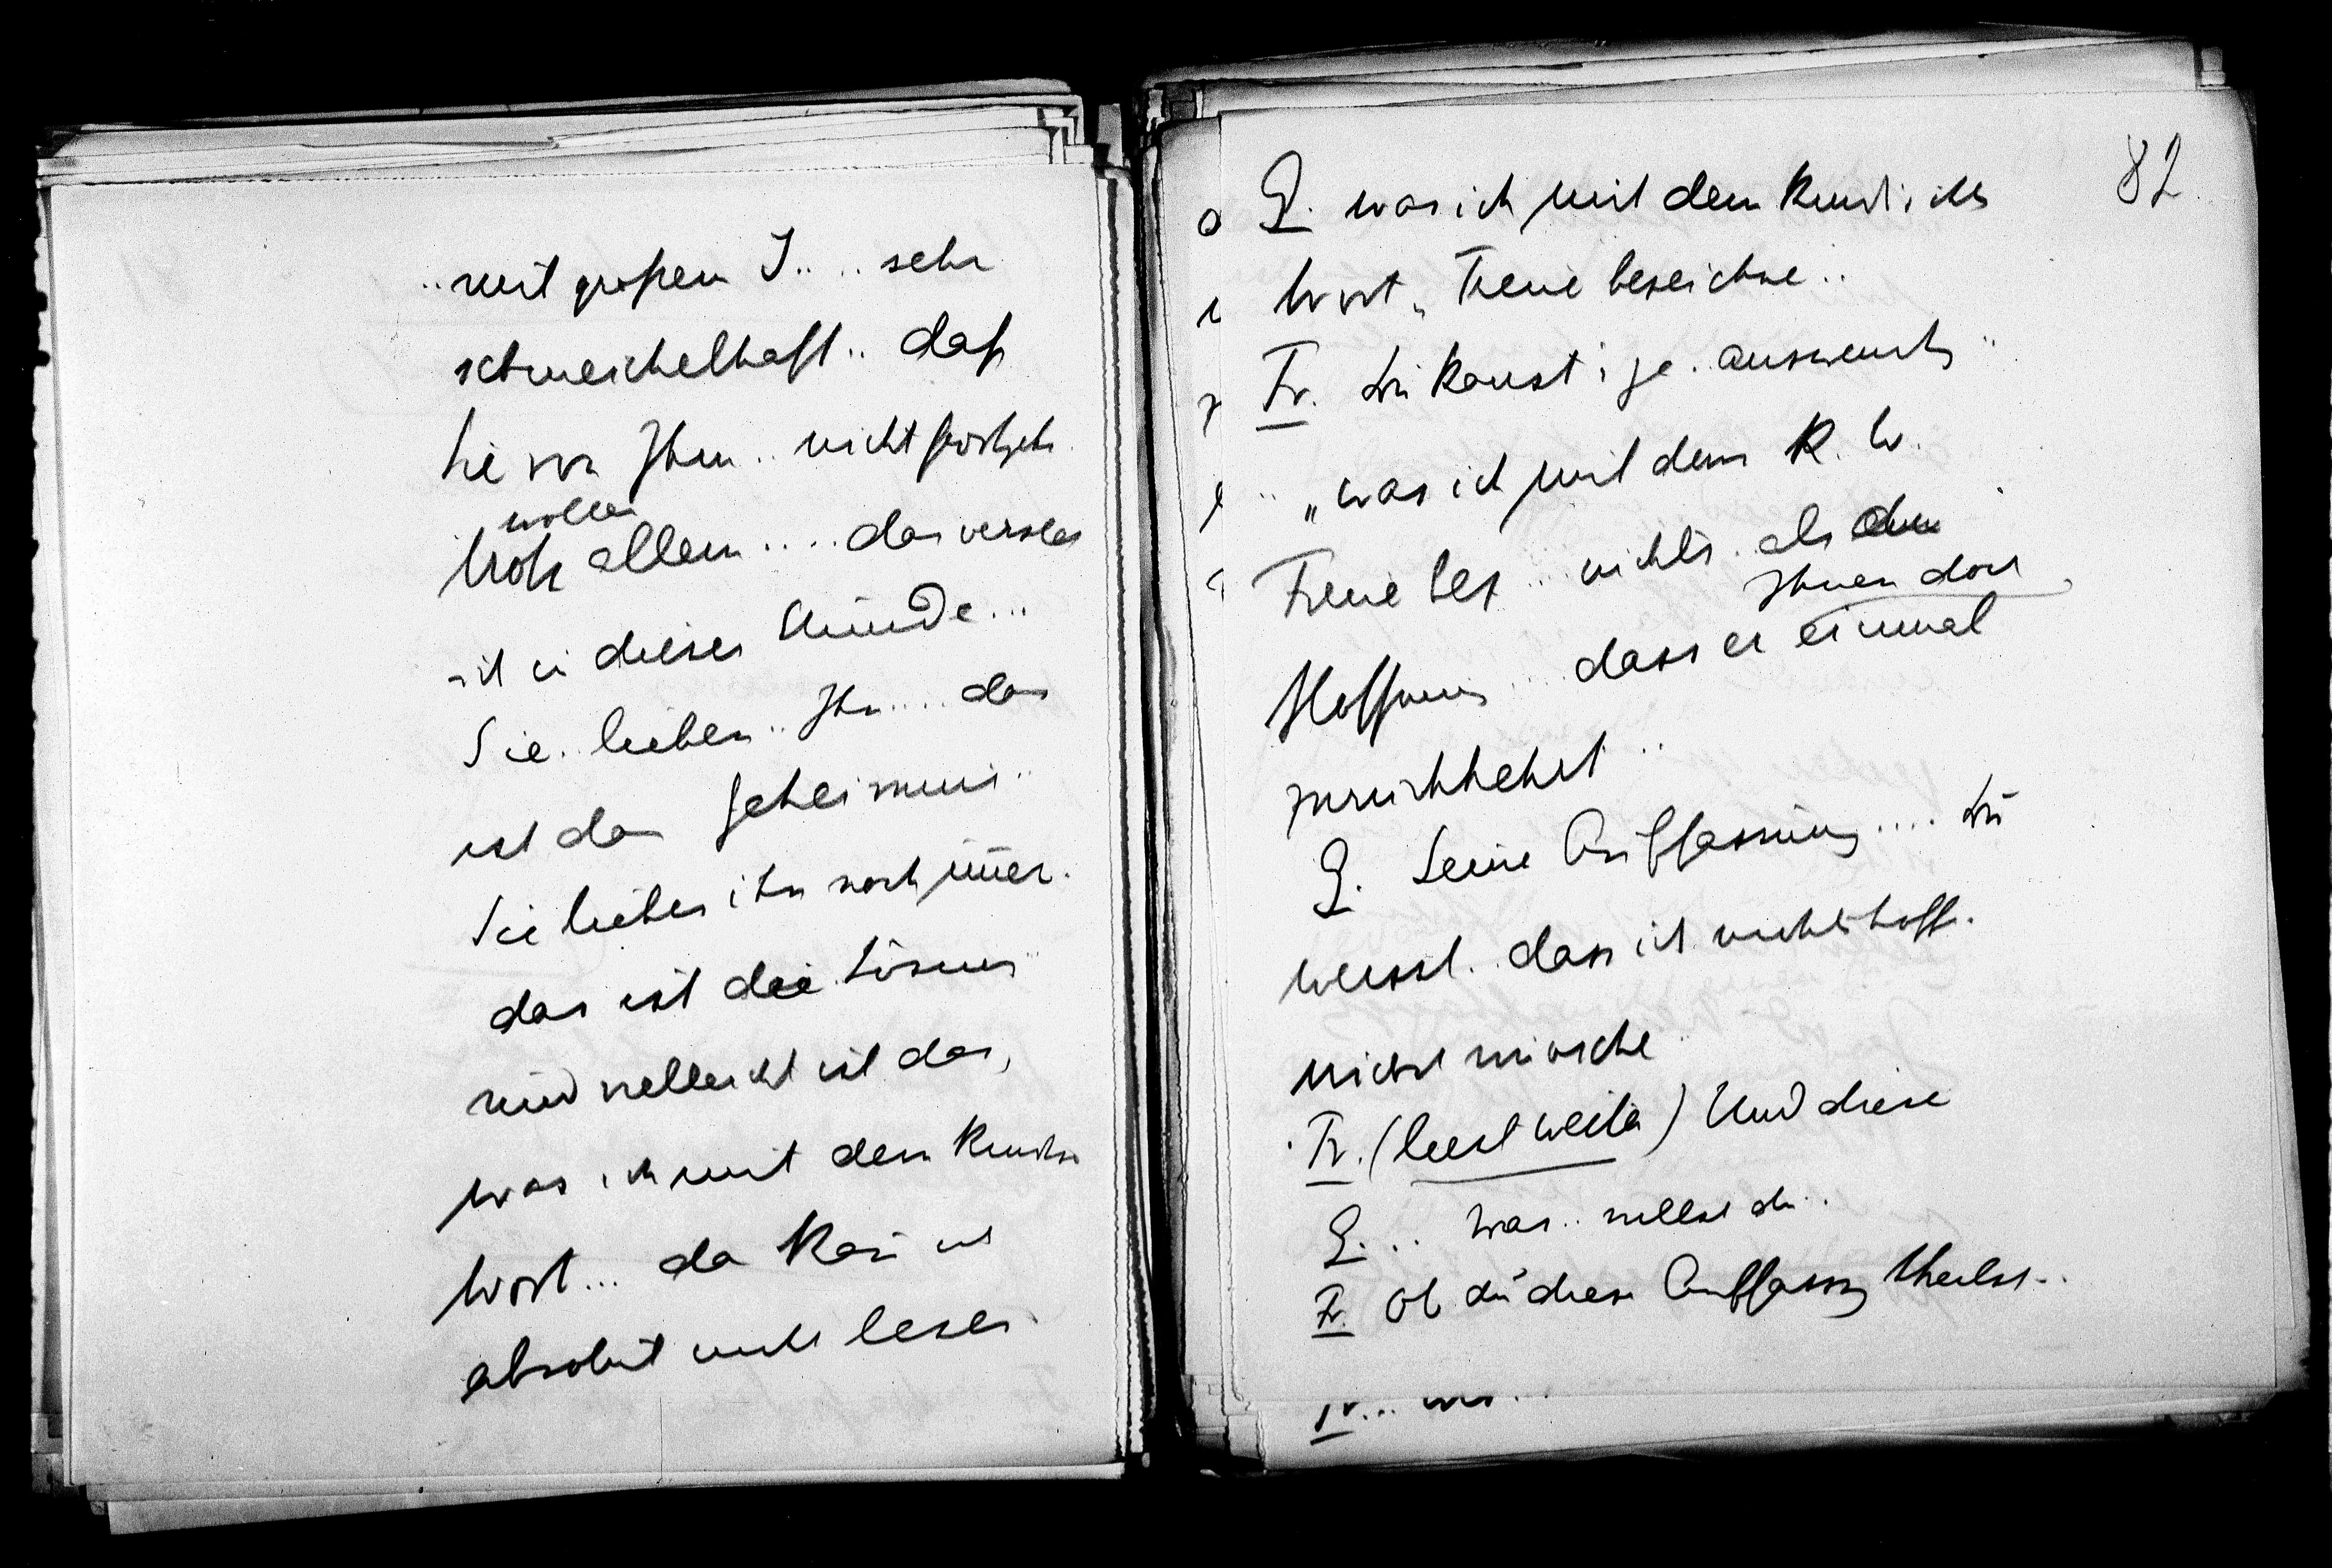 .. mit großem I.. .. sehr
schmeichelhaft .. daß
Sie von Ihm .. nicht
wollen
trotz allem .... das versteh
ich in dieser Stunde...
Sie. lieben .. Ihn .... das
ist das Geheimnis ..
Sie lieben ihn noch im̄er.
das ist die Lösung ..
und vielleicht ist das,
was ich mit dem
Wort... da kan̄ ich
absolut nicht lesen.
82
was ich mit dem
Wort „ Treue bezeichne ..
Fr. Du kannst ja. auswendig ..
.. „was ich mit dem K. W.
Treue bez ... nichts. als
Ihnen doch
Hoffnung ... dass er einmal
zurückkehrt ..
Seine Auffassung .... Du
weisst. dass ich nichts hoffe.
nichts wünsche ..
Fr. (liest weiter) Und diese
.. Was .. willst du ..
Fr. Ob du diese Auffassung theilst..
Fr... was ...